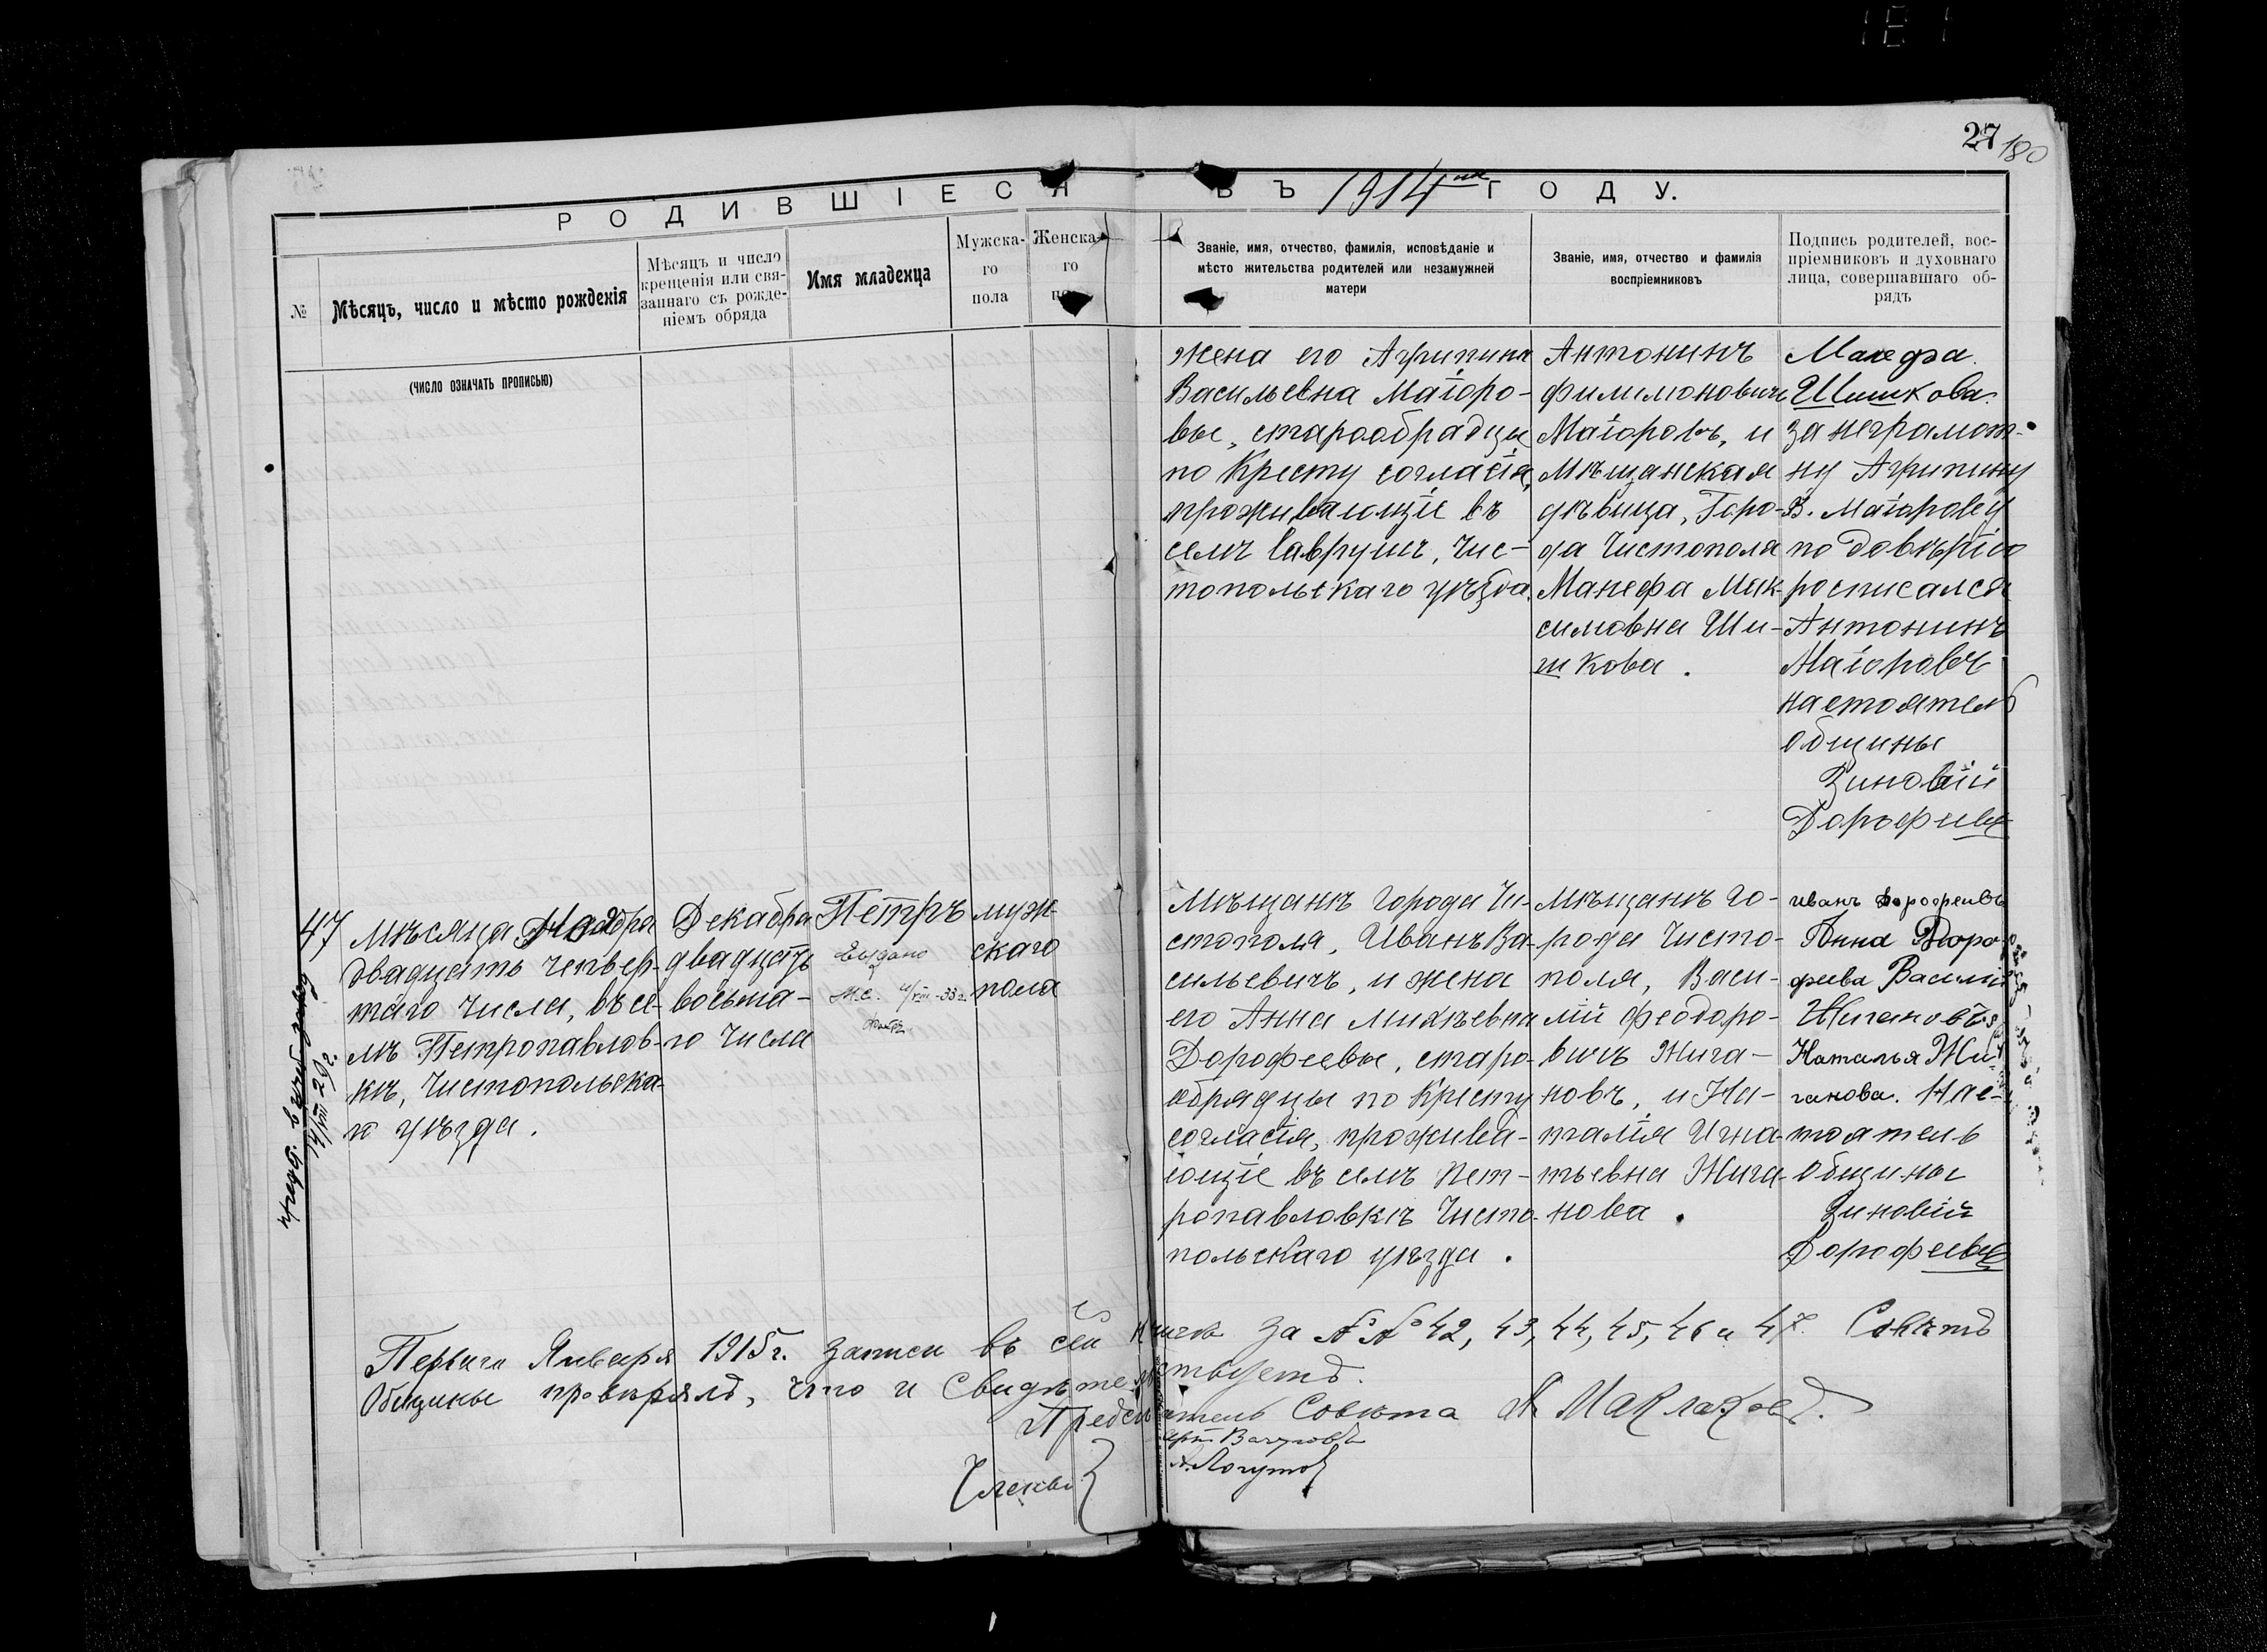 27 180
РОДИВШІЕСЯ ВЪ 1914мъ ГОДУ.
№
Мѣсяцъ, число и мѣсто рожденія
(ЧИСЛО ОЗНАЧАТЬ ПРОПИСЬЮ)
Мѣсяцъ и число
крещенія или свя-
заннаго съ рожде-
ніемъ обряда
Имя младенца
Мужска-
го
пола
Женска-
го
Званіе, имя, отчество, фамилія, исповѣданіе и
мѣсто жительства родителей или незамужней
матери
Званіе, имя, отчество и фамилія
воспріемниковъ
Подпись родителей, вос-
пріемниковъ и духовнаго
лица, совершавшаго об-
рядъ
жена его Агрипина
Васильевна Маіоро-
вы, старообрадцы
по Кресту согласія,
проживающіе въ
селѣ Гаврушѣ, Чис-
топольскаго уѣзда.
Антонинъ
Филимоновичъ
Маіоровъ, и
Мѣщанская
дѣвица, Горо-
да Чистополя
Манефа Мак-
симовна Ши-
шкова.
Манефа
Шишкова.
за неграмот-
ну Агрипину
В. Маіорову
по довѣрію
росписался
Антонинъ
Маіоровъ
настоятель
общины
Зиновій
Дорофеевъ
47
мѣсяца Ноября
двадцать четвер-
таго числа, въ се-
лѣ Петропавлов-
кѣ, Чистопольска-
го уѣзда.
Декабря
двадцать
восьма-
го числа
Петръ
Выдано
муж-
скаго
пола
14/VIII 29 г.
Мѣщанъ города Чи-
стополя, Иванъ Ва-
сильевичъ, и жена
его Анна Михѣевна
Дорофеевы, старо-
обрядцы по Кресту
согласія, прожива-
ющіе въ селѣ Пет-
ропавловкѣ Чисто-
польскаго уѣзда.
Мѣщанъ го-
рода Чисто-
поля, Васи-
лій Феодоро-
вичъ Жига-
новъ, и На-
талія Игна-
тьевна Жига-
нова.
иванъ Дорофеивъ
Анна Доро-
феева Василій
Жигановъ
Наталья Жи-
ганова. Нас-
тоятель
общины
Зиновій
Дорофеевъ
Перваго Января 1915 г. записи въ сей книгѣ за №№ 42, 43, 44, 45, 46 и 47. Совѣтъ
Общины провѣрялъ, что и Свидѣтельствуетъ.
Предсѣдатель Совѣта
Члены